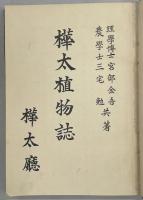 理學博士 宮部金吾 共著
農學士 三宅勉
樺太植物誌
樺太廳